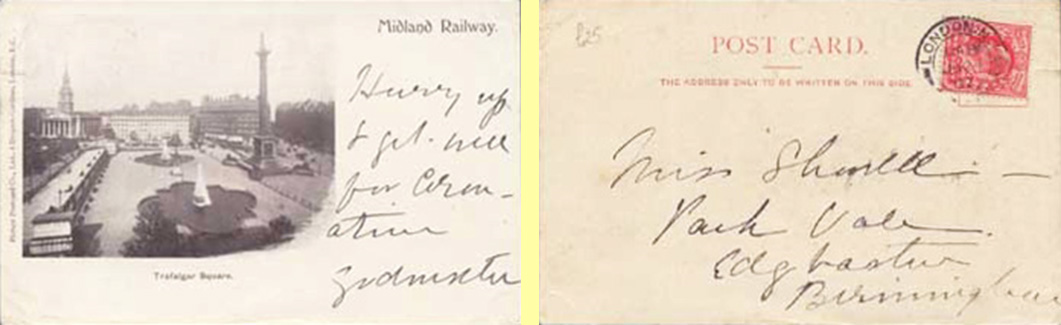 Midland Railway.
Hurry up
& get well
for Coron-
ation
Trafalgar Square.
£25
POST CARD.
THE ADDRESS ONLY TO BE WRITTEN ON THIS SIDE.
LONDON
Miss
Park Vale.
Edgbaston
Birmingham